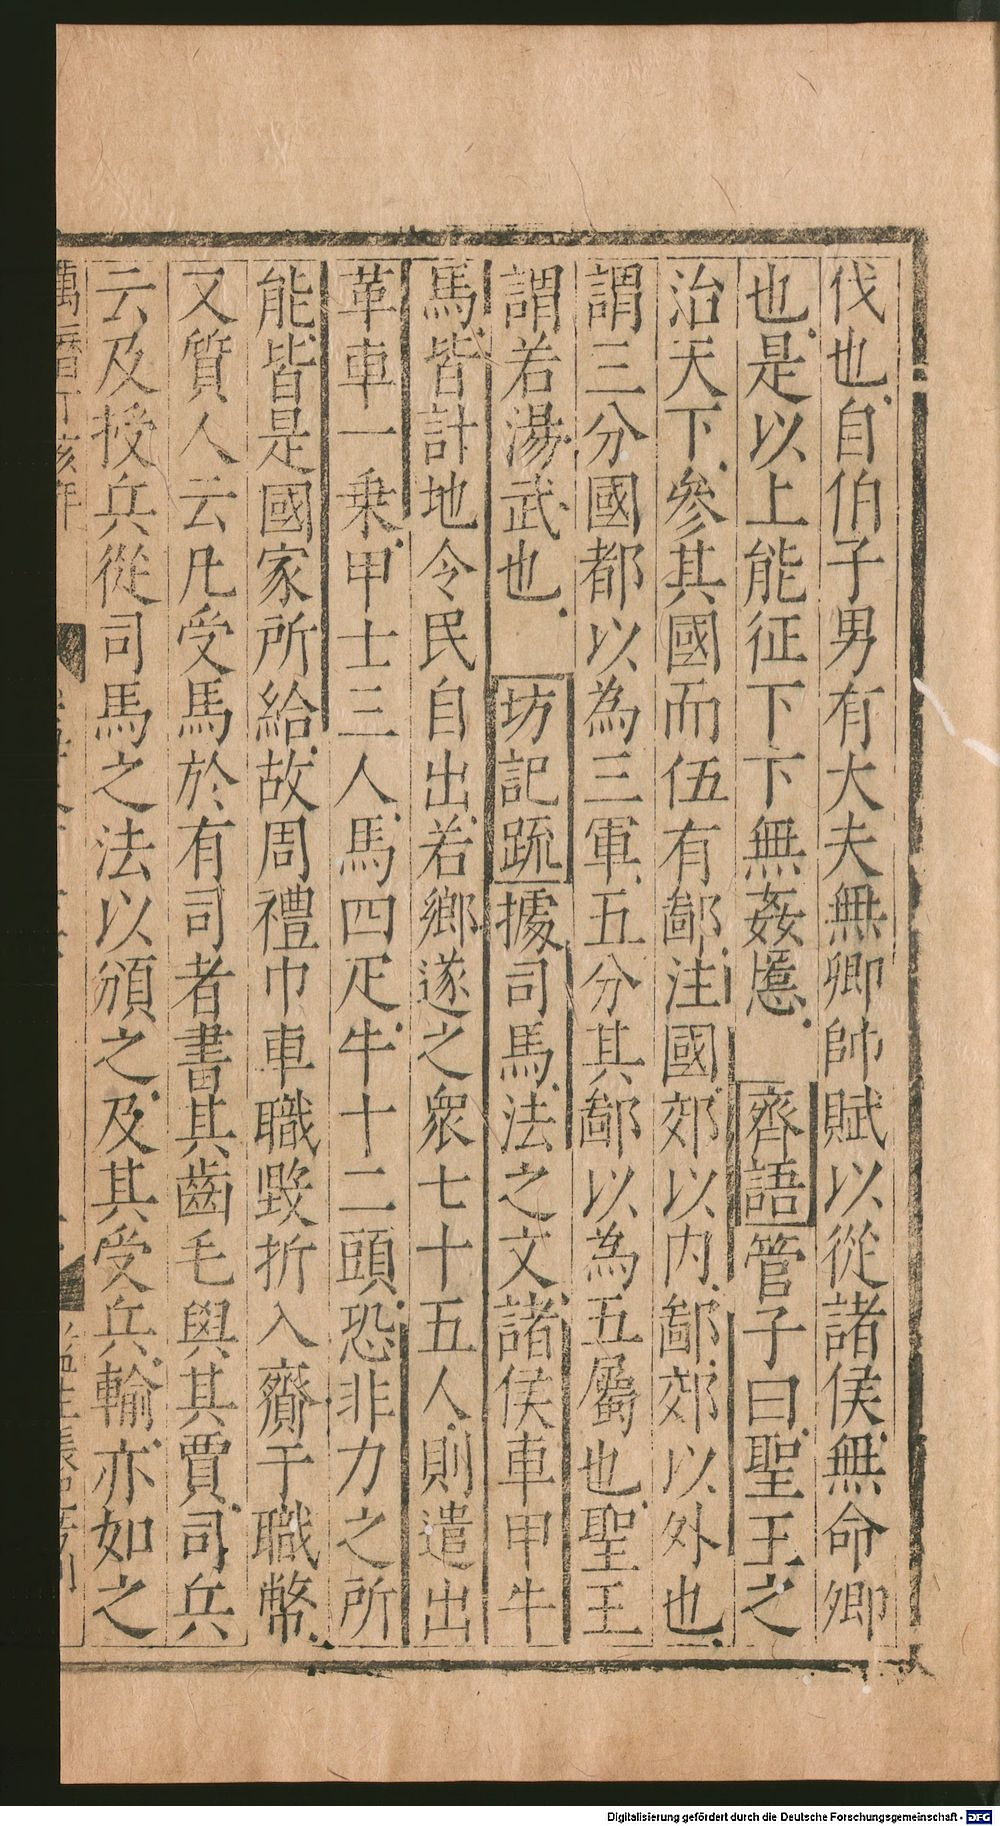 伐也自伯子男有大夫無卿帥賦以從諸侯無命卿
也是以上能征下下無姦慝 齊語管子曰聖王之
治天下參其國而伍有鄙注國郊以内鄙郊以外也
謂三分國都以為三軍五分其鄙以為五屬也聖王
謂若湯武也 坊記䟽據司馬法之文諸侯車甲牛
馬皆計地令民自出若鄉遂之衆七十五人則遣出
革車一乗甲士三人馬四疋牛十二頭恐非力之所
能皆是國家所給故周禮巾車職毀折入齎于職幣
又質人云凡受馬於有司者書其齒毛與其賈司兵
云及授兵從司馬之法以頒之及其受兵輸亦如之
萬曆丁亥年
Digitalisierung gefördert durch die Deutsche Forschungsgemeinschaft - DFG